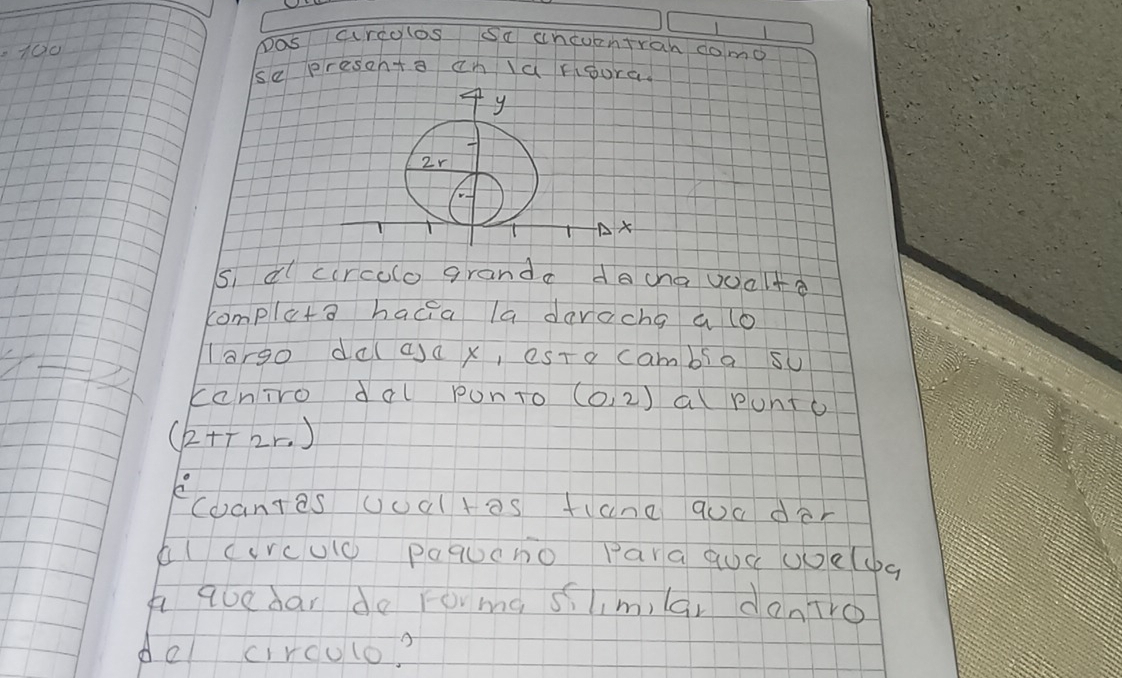 - 100
Dos circulos se encuentran como
se presenta en la figura.
y
2r
r
x
Si el circulo grande da una vuelta
completa hacia la derecha a lo
largo del eje x, este cambia su
centro del punto (0,2) al punto
(2π 2r.)
¿
Cuantas vueltas tiene que dar
el circulo pequeño para que vuelva
a quedar de forma silimilar dentro
del circulo?